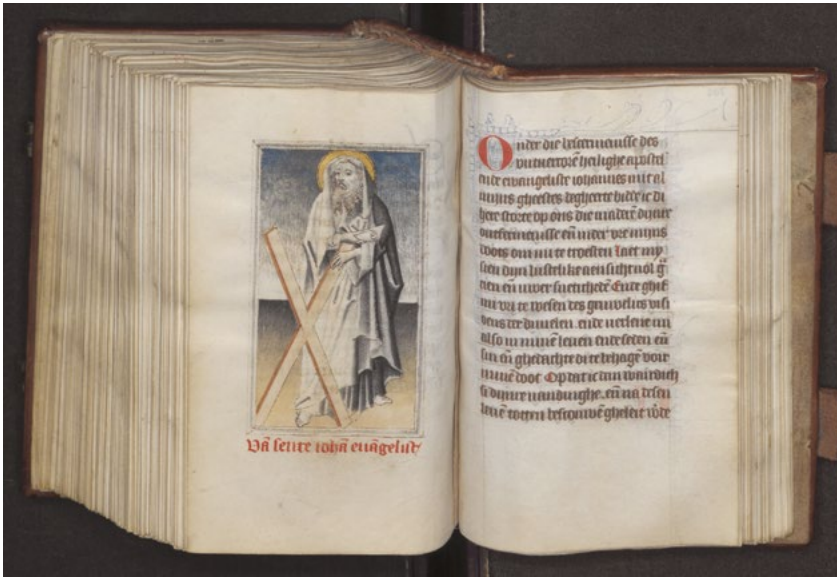 Vā sente iohā euāgelist
Onder die bescermenisse des
vutuercorē heilighe apostel
ende ewangeliste iohannes mit al
mijns gheestes begheerte bidde ic di
here storte op ons die dijnre
ontfermenisse eñ inder vre mijns
doots om mi te troesten Laet my
sien dijn lustelike aensicht uol
eñ Ende ghif
mi vri te wesen des gruwelics visi
oens der duuelen. ende uerlene mi
also in minē leuen ende seden eñ
sin eñ ghedachte di te behagē voir
minē doot Op dat ic dan wairdich
si dijnre uandinghe. eñ na desen
leuē totten bescouwē gheleit